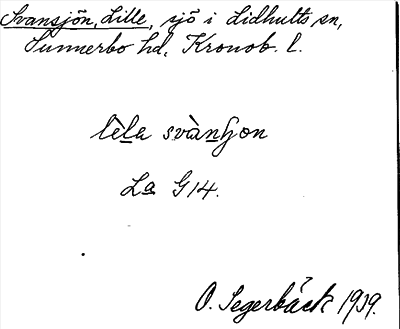 Svansjön, Lille, sjö i Lidhults sn,
Sunnerbo hd, Kronob. l.
lèla svànʃjon
La G14.
O. Segerbäck 1939.